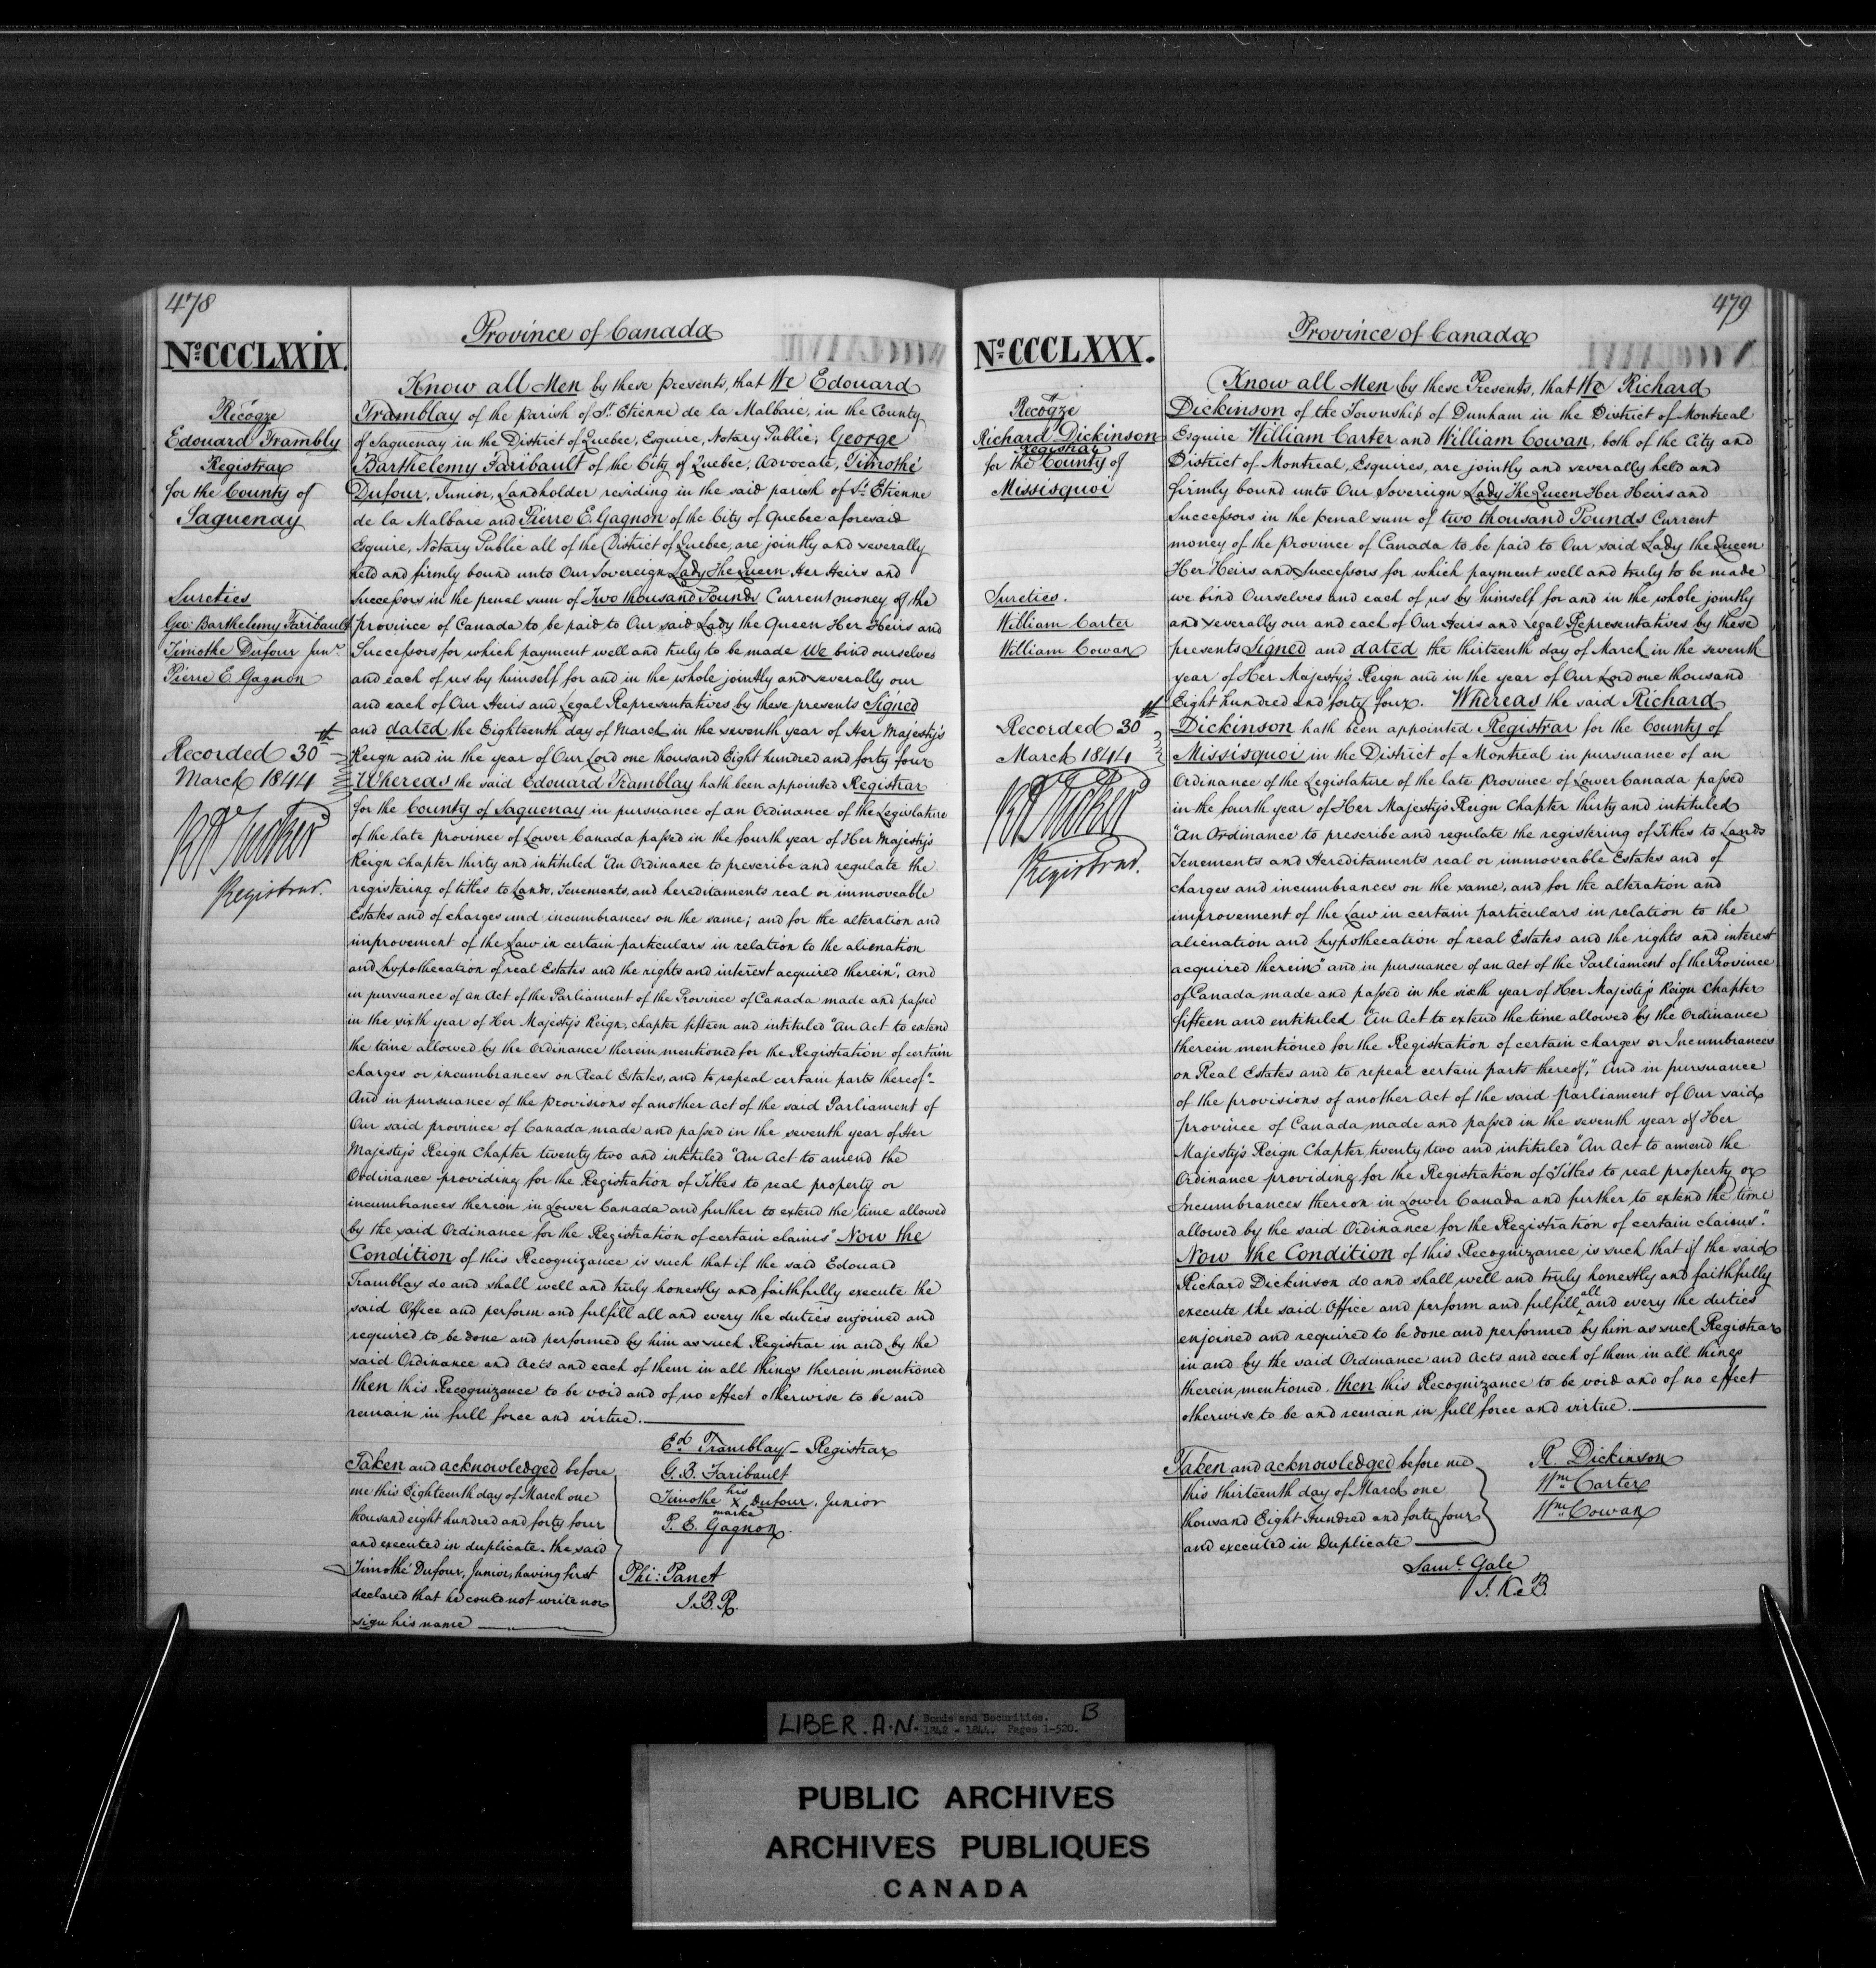 478
No. CCCLXXIX.
Province of Canada
Recogze
Edouard Trambly
Registrar
for the County of
Saguenay
Sureties
Geo: Barthelemy Faribault
Timothe Dufour Junr.
Pierre E. Gagnon
Recorded 30th
March 1844
Registrar.
Know all Men by these presents, that We Edouard
Tramblay of the parish of St. Etienne de la Malbaie, in the County
of Saguenay in the District of Quebec, Esquire, Notary Public; George
Barthelemy Faribault of the City of Quebec, Advocate, Timothé
Dufour, Junior, Landholder residing in the said parish of St. Etienne
de la Malbaie and Pierre E. Gagnon of the City of Quebec aforesaid
Esquire, Notary Public all of the District of Quebec, are jointly and severally
held and firmly bound unto Our Sovereign Lady The Queen Her Heirs and
Successors in the penal sum of Two thousand Pounds Current money of the
province of Canada to be paid to Our said Lady the Queen Her Heirs and
Successors for which payment well and truly to be made We bind ourselves
and each of us by himself for and in the whole jointly and severally our
and each of Our Heirs and Legal Representatives by these presents Signed
and dated the Eighteenth day of March in the seventh year of Her Majesty's
Reign and in the year of Our Lord one thousand Eight hundred and forty four
Whereas the said Edouard Tramblay hath been appointed Registrar
for the County of Saguenay in pursuance of an Ordinance of the Legislature
of the late province of Lower Canada passed in the fourth year of Her Majesty's
Reign Chapter thirty and intituled "An Ordinance to prescribe and regulate the
registering of titles to Lands, Tenements, and hereditaments real or immoveable
Estates and of charges and incumbrances on the same; and for the alteration and
improvement of the Law in certain particulars in relation to the alienation
and hypothecation of real Estates and the rights and interest acquired therein", and
in pursuance of an Act of the Parliament of the Province of Canada made and passed
in the sixth year of Her Majesty's Reign, chapter fifteen and intituled "An Act to extend
the time allowed by the Ordinance therein mentioned for the Registration of certain
charges or incumbrances on Real Estates, and to repeal certain parts thereof"-
And in pursuance of the provisions of another Act of the said Parliament of
Our said province of Canada made and passed in the seventh year of Her
Majesty's Reign Chapter twenty two and intituled "An Act to amend the
Ordinance providing for the Registration of Titles to real property or
incumbrances thereon in Lower Canada and further to extend the time allowed
by the said Ordinance for the Registration of certain claims" Now the
Condition of this Recognizance is such that if the said Edouard
Tramblay do and shall well and truly honestly and faithfully execute the
said Office and perform and fulfill all and every the duties enjoined and
required to be done and performed by him as such Registrar in and by the
said Ordinance and Acts and each of them in all things therein mentioned
then this Recognizance to be void and of no effect otherwise to be and
remain in full force and virtue.
Ed. Tramblay - Registrar
G. B. Faribault
his
Timothe X Dufour, Junior
marke
P. E. Gagnon.
Taken and acknowledged before
me this Eighteenth day of March one
thousand eight hundred and forty four
and executed in duplicate. the said
Timothé Dufour, Junior, having first
declared that he could not write nor
sign his name
Phi: Panet
J.B.R.
479
No. CCCLXXX.
Province of Canada
Recogze
Richard Dickinson
Registrar
for the County of
Missisquoi
Sureties.
William Carter
William Cowan
Recorded 30th
March 1844
Registrar.
Know all Men by these Presents, that We Richard
Dickinson of the Township of Dunham in the District of Montreal
Esquire William Carter and William Cowan, both of the City and
District of Montreal, Esquires, are jointly and severally held and
firmly bound unto Our Sovereign Lady The Queen Her Heirs and
Successors in the penal sum of two thousand Pounds Current
money of the Province of Canada to be paid to Our said Lady the Queen
Her Heirs and Successors for which payment well and truly to be made
we bind Ourselves and each of us by himself for and in the whole jointly
and severally our and each of Our Heirs and Legal Representatives by these
presents Signed and dated the thirteenth day of March in the seventh
year of Her Majesty's Reign and in the year of Our Lord one thousand
Eight hundred and forty four. Whereas the said Richard
Dickinson hath been appointed Registrar for the County of
Missisquoi in the District of Montreal in pursuance of an
Ordinance of the Legislature of the late Province of Lower Canada passed
in the fourth year of Her Majesty's Reign Chapter thirty and intituled
"An Ordinance to prescribe and regulate the registering of Titles to Lands
Tenements and Hereditaments real or immoveable Estates and of
charges and incumbrances on the same, and for the alteration and
improvement of the Law in certain particulars in relation to the
alienation and hypothecation of real Estates and the rights and interest
acquired therein" and in pursuance of an Act of the Parliament of the Province
of Canada made and passed in the sixth year of Her Majesty's Reign Chapter
fifteen and entituled "An Act to extend the time allowed by the Ordinance
therein mentioned for the Registration of certain charges or Incumbrances
on Real Estates and to repeal certain parts thereof," And in pursuance
of the provisions of another Act of the said Parliament of Our said
province of Canada made and passed in the seventh year of Her
Majesty's Reign Chapter twenty two and intituled "An Act to amend the
Ordinance providing for the Registration of Titles to real property or
Incumbrances thereon in Lower Canada and further to extend the time
allowed by the said Ordinance for the Registration of certain claims".
Now the Condition of this Recognizance is such that if the said
Richard Dickinson do and shall well and truly honestly and faithfully
execute the said Office and perform and fulfill all and every the duties
enjoined and required to be done and performed by him as such Registrar
in and by the said Ordinance and Acts and each of them in all things
therein mentioned. then this Recognizance to be void and of no effect
otherwise to be and remain in full force and virtue.
Taken and acknowledged before me
this thirteenth day of March one
thousand Eight Hundred and forty four
and executed in Duplicate
R. Dickinson
Wm. Carter
Wm. Cowan
Saml. Gale
J.K.B.
LIBER. A.N. Bonds and Securities. B
1842 - 1844. Pages 1-520.
PUBLIC ARCHIVES
ARCHIVES PUBLIQUES
CANADA